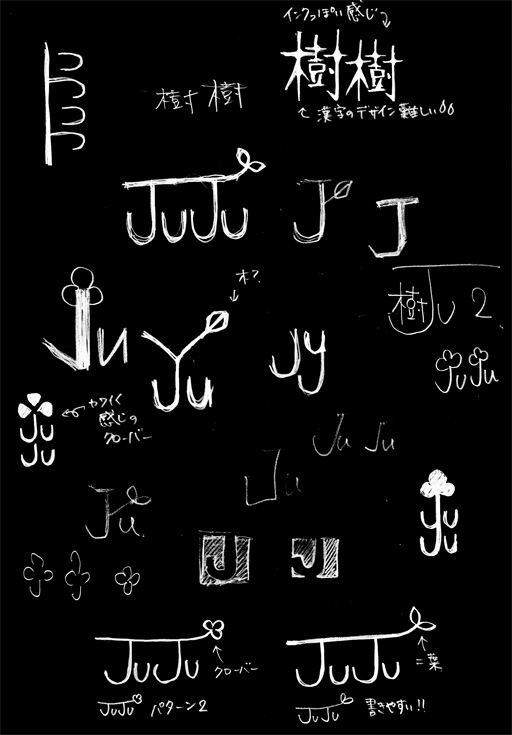 インクっぽい感じ
樹樹
樹樹
漢字のデザイン難しい
JuJu
J
J
木?
樹Ju 2
Ju
Ju
Jy
JuJu
カワイイ
感じの
クローバー
Ju
Ju
Ju Ju
Ju
Ju
yu
Ju
J
J
JuJu
クローバー
JuJu
二葉
JuJu パターン2
JuJu 書きやすい!!